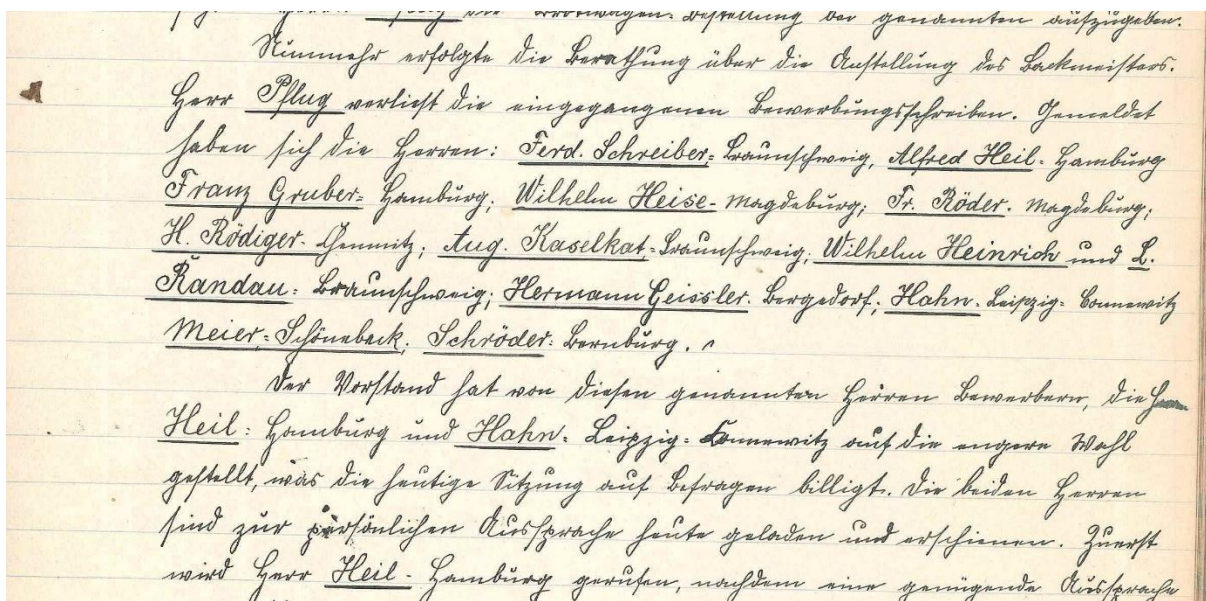 die Brotwagen-Bestellung bei genannten aufzugeben.
Nunmehr erfolgte die Berathung über die Anstellung des Backmeisters.
Herr Pflug verliest die eingegangenen Bewerbungsschreiben. Gemeldet
haben sich die Herren: Ferd. Schreiber-Braunschweig, Alfred Heil-Hamburg
Franz Gruber-Hamburg; Wilhelm Heise-Magdeburg; Fr. Röder-Magdeburg;
H. Rödiger-Chemnitz; Aug. Kaselkat-Braunschweig; Wilhelm Heinrich und L.
Randau-Braunschweig; Hermann Geissler-Bergedorf; Hahn-Leipzig-Connewitz
Meier-Schönebeck; Schröder-Bernburg.
Der Vorstand hat von diesen genannten Herren Bewerbern, die
Heil-Hamburg und Hahn-Leipzig-Connewitz auf die engere Wahl
gestellt, was die heutige Sitzung auf Befragen billigt. Die beiden Herren
sind zur persönlichen Aussprache heute geladen und erschienen. Zuerst
wird Herr Heil-Hamburg gerufen, nachdem eine genügende Aussprache